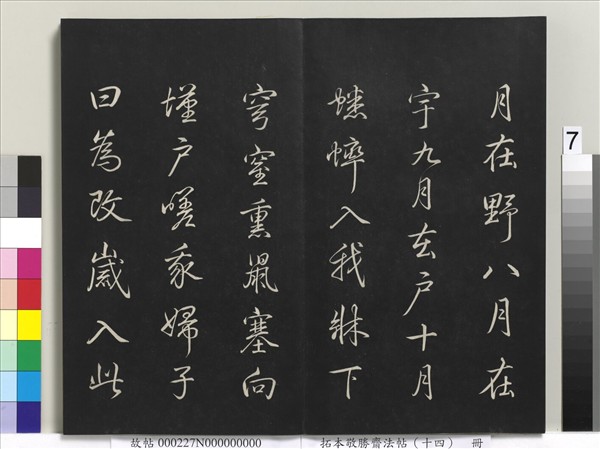 月在野八月在
宇九月在户十月
蟋蟀入我牀下
穹窒熏鼠塞向
墐户嗟我婦子
曰為改歲入此
7
故帖 000227N000000000
拓本敬勝齋法帖（十四） 冊